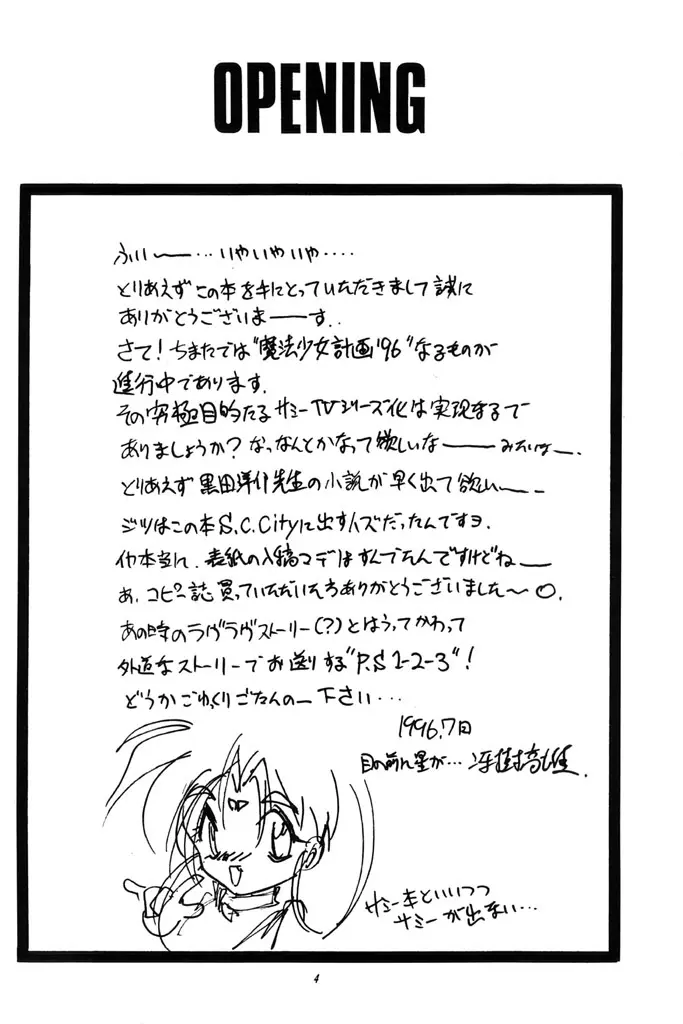 OPENING
ふぃー…いやいやいや‥‥
とりあえずこの本を手にとっていただきまして誠に
ありがとうございまーーす..
さて!ちまたでは"魔法少女計画'96"なるものが
進行中であります.
その究極目的たるサミーTVシリーズ化は実現するで
ありましょうか?なっなんとかなって欲しいなーーみたいなー.
とりあえず黒田洋介先生の小説が早く出て欲しい〜ー
ジツはこの本S.C.Cityに出すハズだったんですヨ.
イヤ本当に.表紙の入稿マデはすんでたんですけどねー
あ.コピー誌買っていただいた方ありがとうございました〜○.
あの時のラヴラヴストーリー(?)とはうってかわって
外道なストーリーでお送りする"P.S1-2-3"!
どうかごゆっくりごたんのー下さい…
1996.7日
目の前に星が…冴樹高雄.
サミー本といいつつ
サミーが出ない…
4